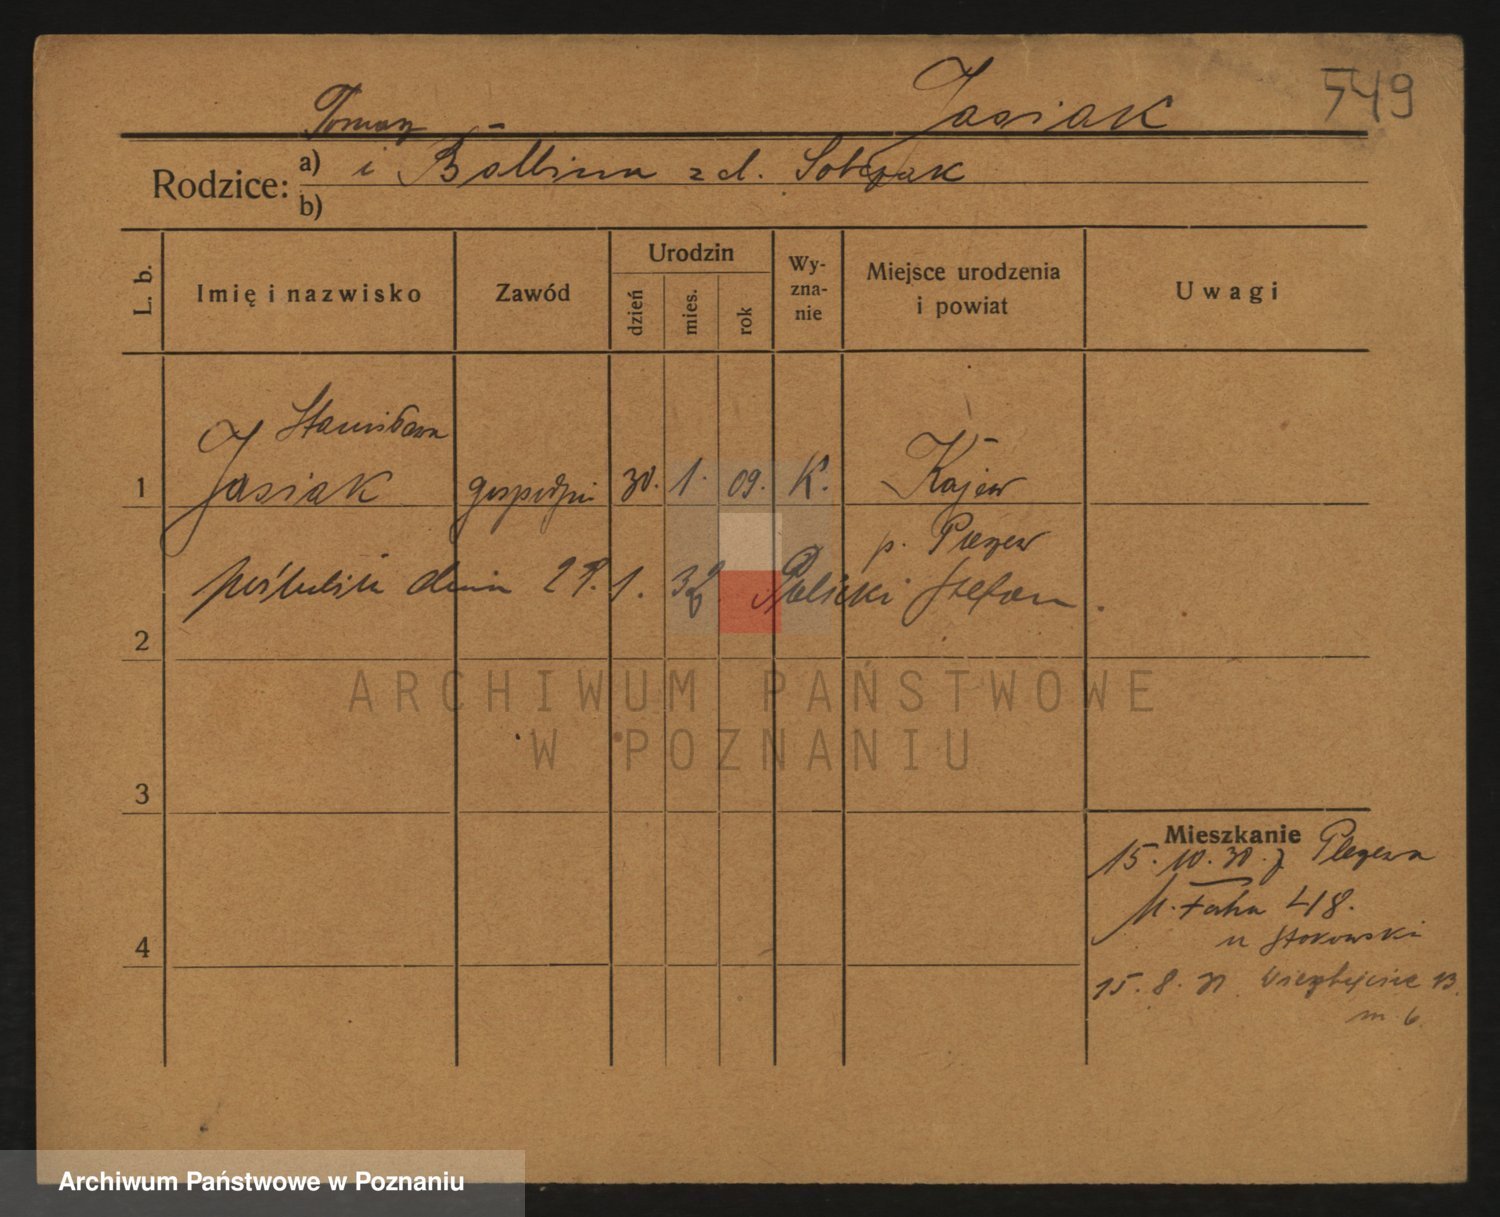 Jasiak
549
Tomasz
Rodzice: a) i Balbina z d. Sobczak
b)
L. b.
Imię i nazwisko
Zawód
Urodzin
dzień
mies.
rok
Wy-
zna-
nie
Miejsce urodzenia
i powiat
Uwagi
Stanisława
1 Jasiak gospodyni 30. 1. 09. K. Kajew
p. Pleszew
poślubiła dnia 1. Stefan.
2
3
4
Mieszkanie
15. 10. 30. z Pleszewa
48.
u Stokowski
15. 8. 31 Wierzbięcice 13
m 6
ARCHIWUM PAŃSTWOWE
W POZNANIU
Archiwum Państwowe w Poznaniu